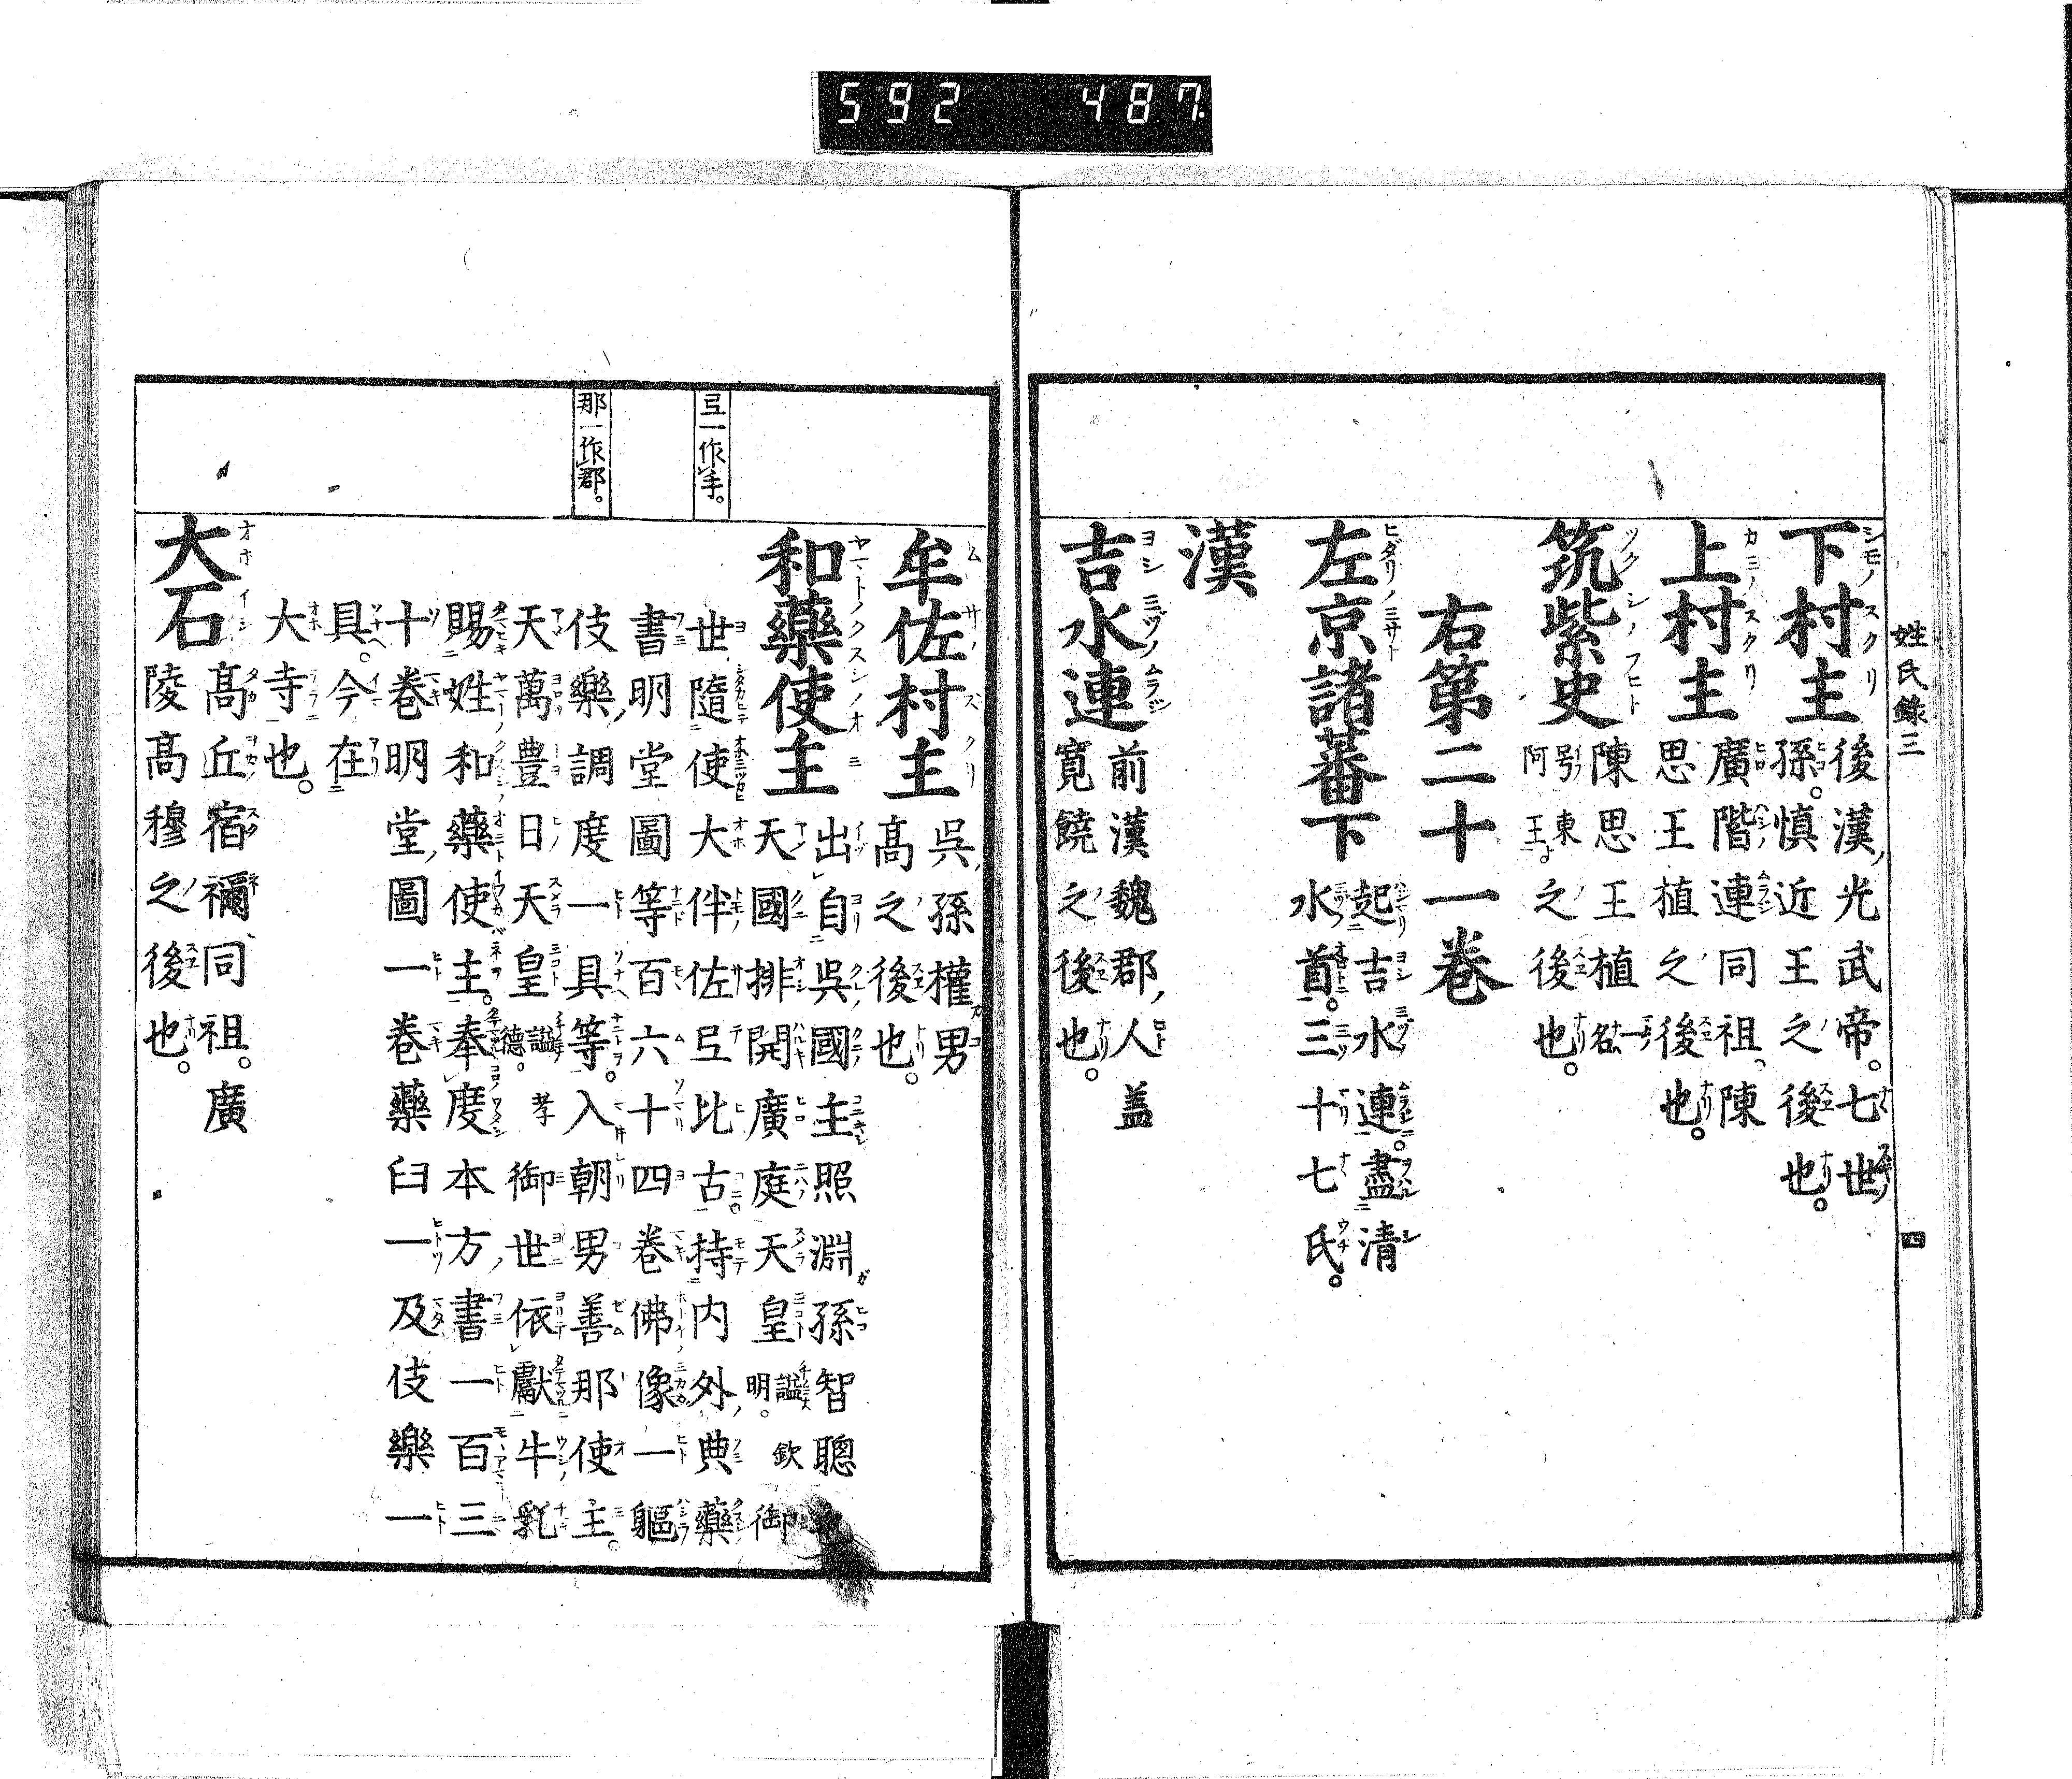 592 487
姓氏錄三 四
下村主
後漢光武帝。七世
孫。慎近王之後也。
上村主
廣階連同祖。陳
思王植之後也。
筑紫史
陳思王植一名
阿王之後也。
右第二十一卷
左京諸蕃下
起吉水連。盡清
水首。三十七氏。
漢
吉水連
前漢魏郡人蓋
寬饒之後也。
牟佐村主
吳孫權男
高之後也。
和藥使主
出自吳國主照淵孫智聰
天國排開廣庭天皇
諡欽明。
御
世隨使大伴佐弖比古。持內外典藥
書明堂圖等百六十四卷佛像一軀
伎樂調度一具等。入朝男善那使主。
天萬豊日天皇
諡孝德。
御世依獻牛乳
賜姓和藥使主。奉度本方書一百三
十卷明堂圖一卷藥臼一及伎樂一
具。今在
大寺也。
大石
高丘宿禰同祖。廣
陵高穆之後也。
弖一作手。
那一作郡。